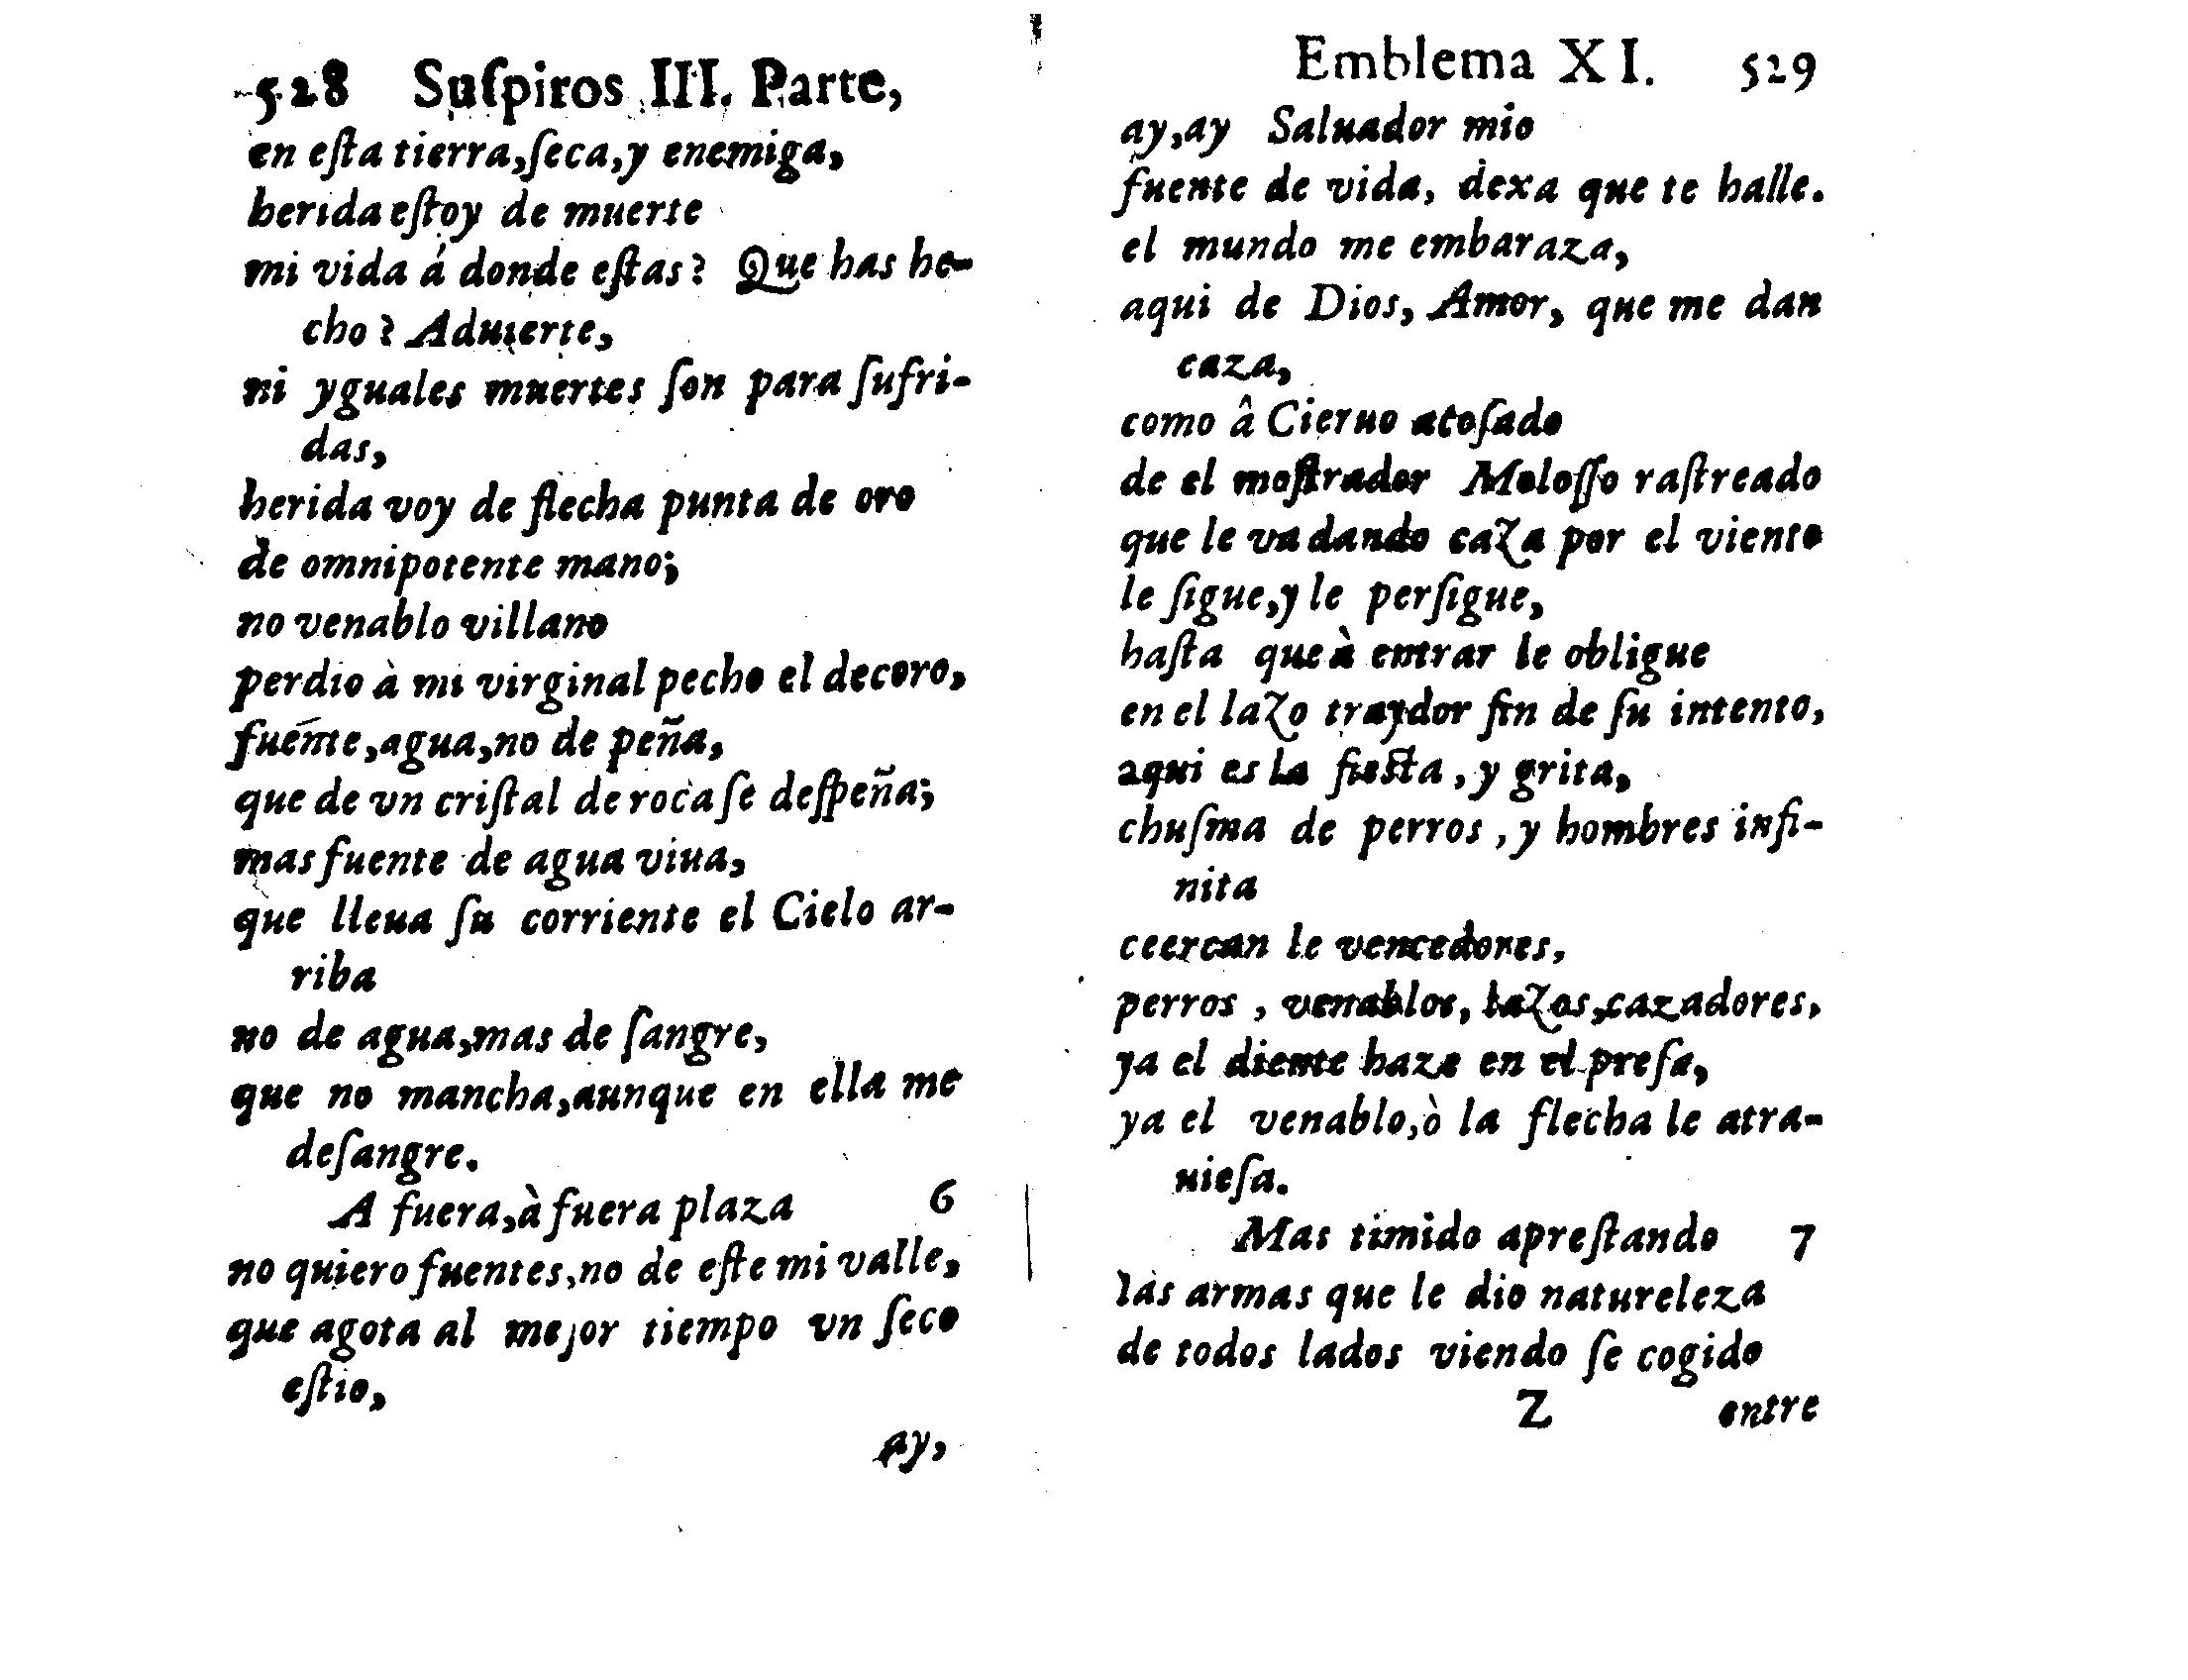 528 Suſpiros III. Parte,
en eſta tierra,ſeca,y enemiga,
herida eſtoy de muerte
mi vida á donde eſtas? Que has he-
cho? Aduierte,
ni yguales muertes ſon para ſufri-
das,
herida voy de flecha punta de oro
de omnipotente mano;
no venablo villano
perdio à mi virginal pecho el decoro,
fuente,agua,no de peña,
que de vn criſtal de roca ſe deſpeña;
mas fuente de agua viua,
que lleua ſu corriente el Cielo ar-
riba
no de agua,mas de ſangre,
que no mancha,aunque en ella me
deſangre.
A fuera,à fuera plaza 6
no quiero fuentes,no de eſte mi valle,
que agota al mejor tiempo vn ſeco
eſtio,
ay,
Emblema XI. 529
ay,ay Saluador mio
fuente de vida, dexa que te halle.
el mundo me embaraza,
aqui de Dios, Amor, que me dan
caza,
como â Cieruo acoſado
de el moſtrador Moloſſo raſtreado
que le va dando caza por el viento
le ſigue,y le perſigue,
haſta que à entrar le obligue
en el lazo traydor fin de ſu intento,
aqui es la fieſta, y grita,
chuſma de perros, y hombres infi-
nita
ceercan le vencedores,
perros, venablos, lazos,cazadores,
ya el diente haze en el preſa,
ya el venablo,ò la flecha le atra-
uieſa.
Mas timido apreſtando 7
las armas que le dio natureleza
de todos lados viendo ſe cogido
Z entre